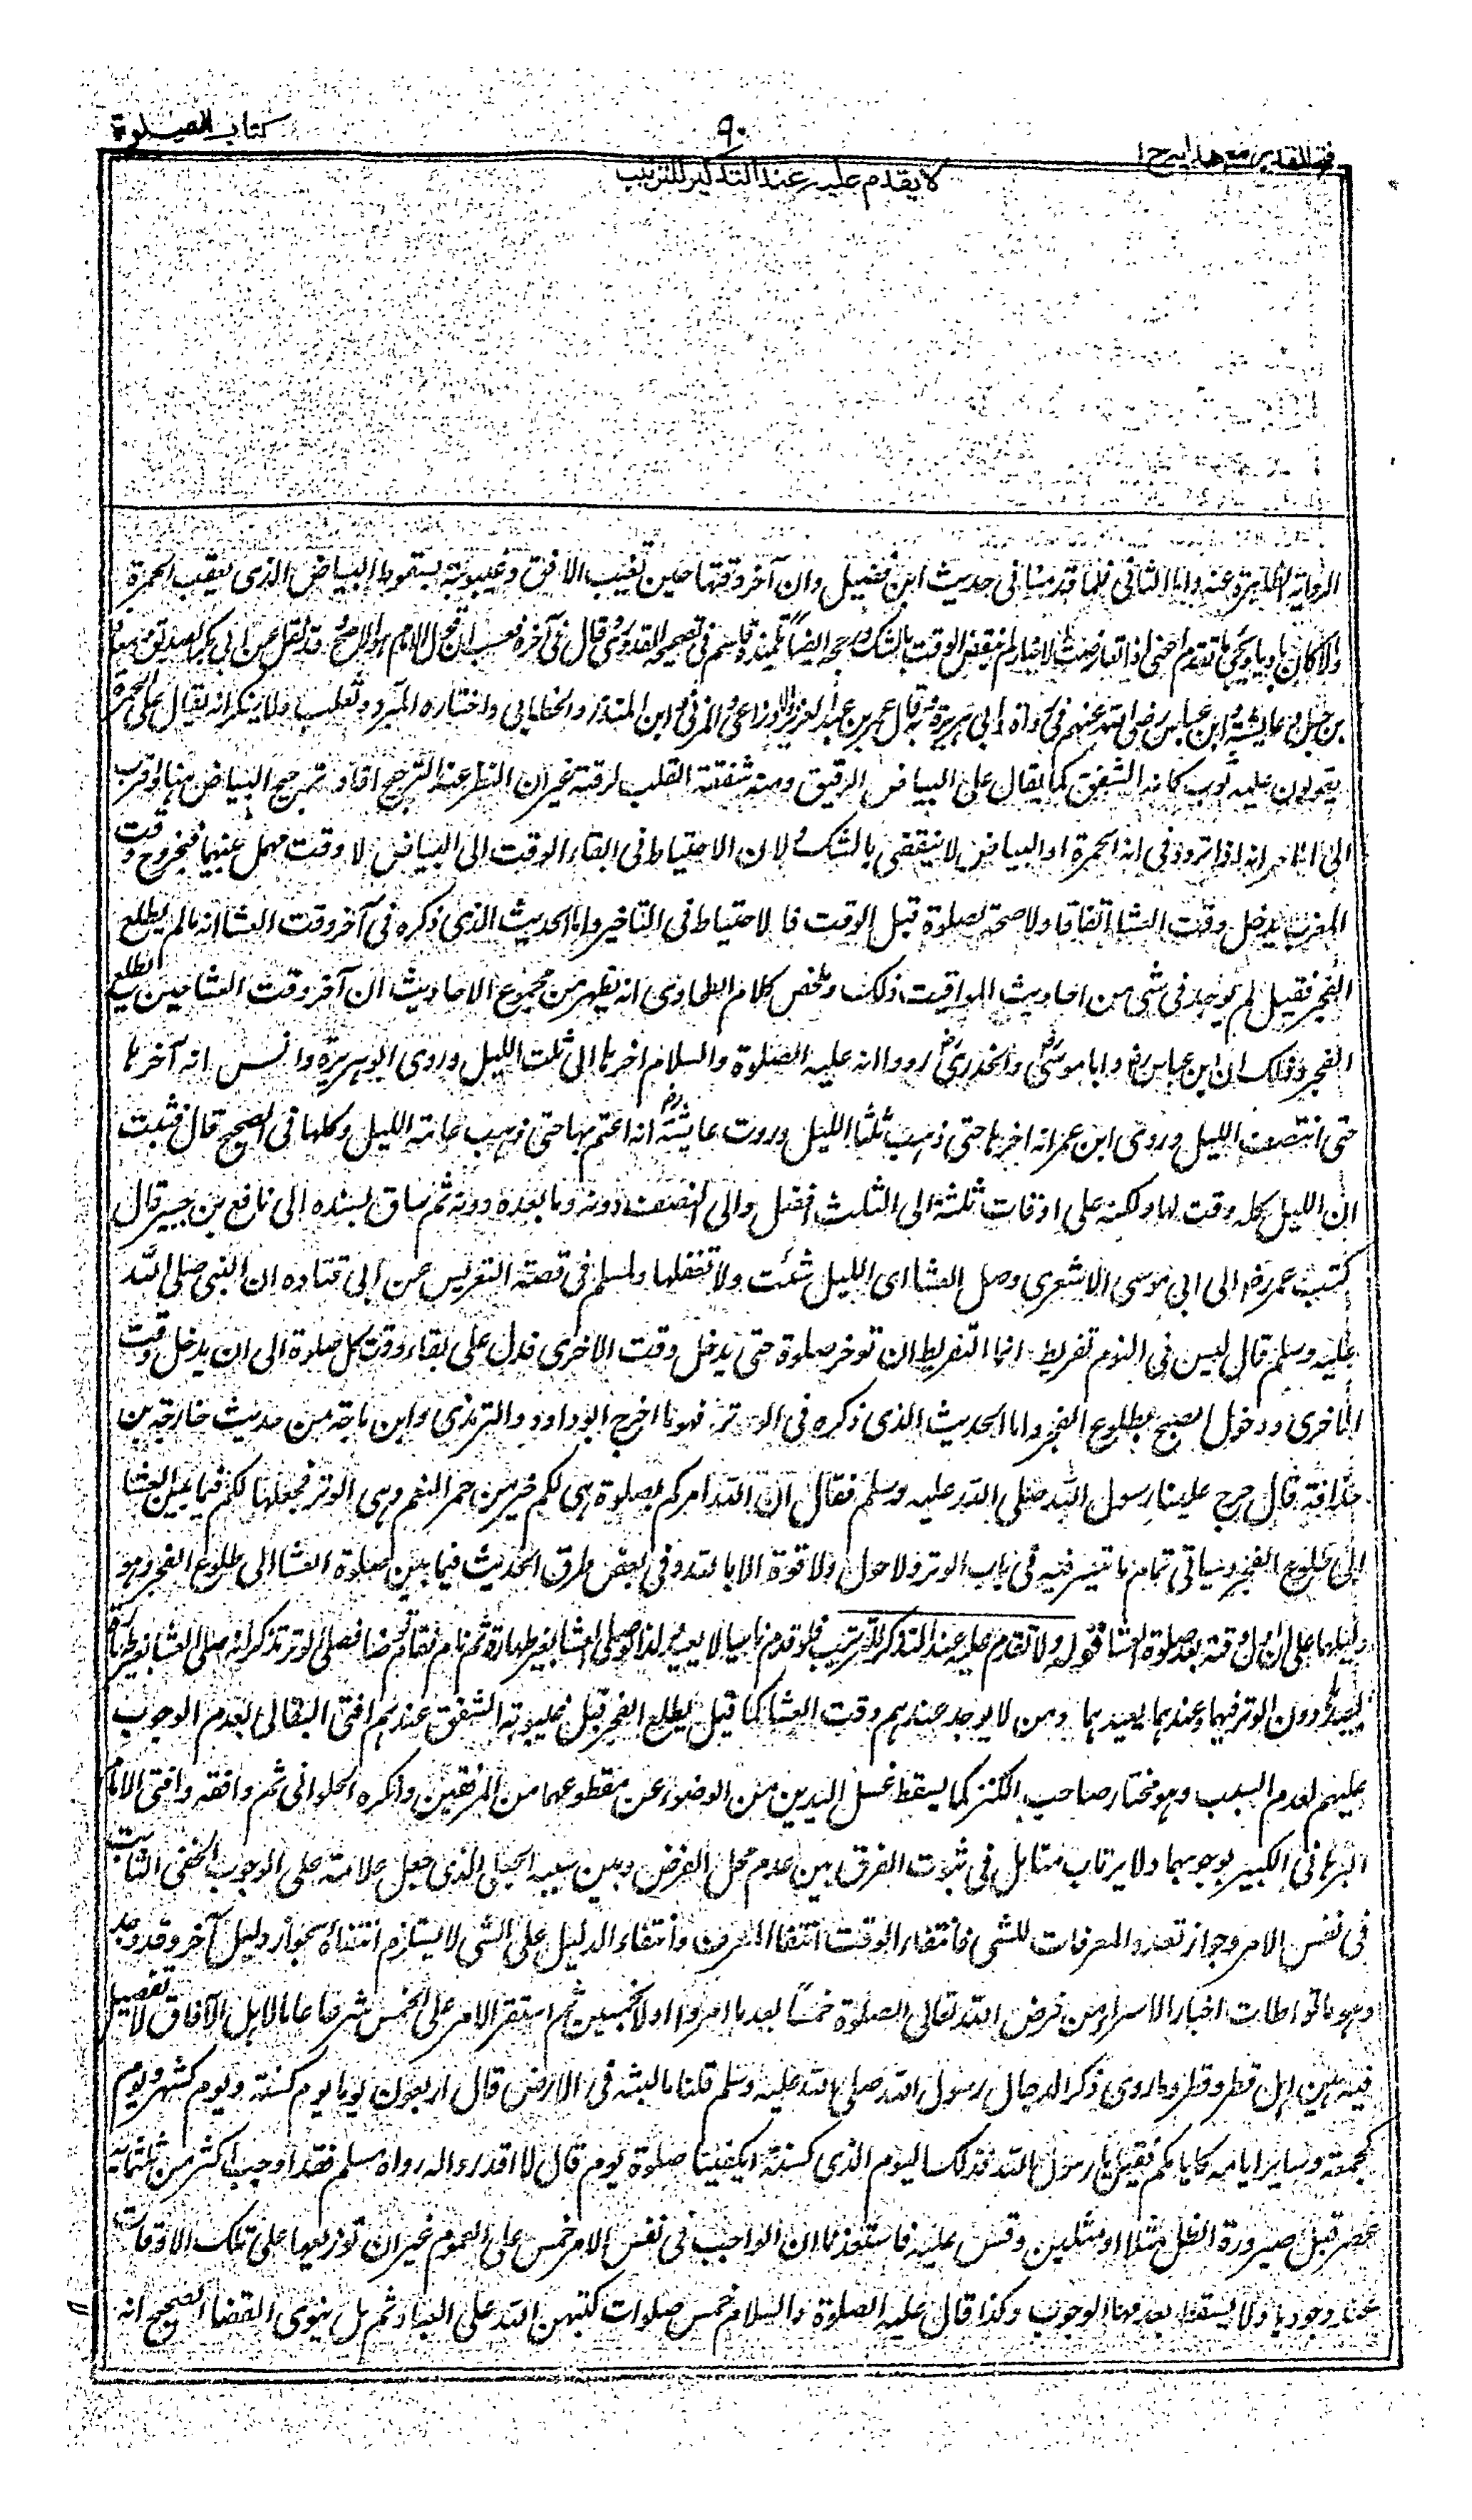 فتح القدير مع هدايه ج ١
٩٠
كتاب الصلوة
لا يقدم عليه عند التذكير للترتيب
الرواية الظاهرة عنه واما الثانى فلما قدمنا فى حديث ابن فضيل وان آخر وقتها حين تغيب الافق وغيبوبته بسقوط البياض الذى يعقب الحمرة
والا كان باديا ويجئ ما تقدم اعنى اذا تعارضت الاخبار لم ينقض الوقت بالشك ورجحه ايضاً تلميذه قاسم فى تصحيح القدورى قال فى آخره فثبت ان قول الامام هو الاصح وقد نقل عن ابى بكر الصديق ومعاذ
بن جبل وعايشة وابن عباس رضى الله عنهم فى رواة وابى هريرة وبه قال عمر بن عبد العزيز والاوزاعى والمزنى وابن المنذر والخطابى واختاره المبرد وثعلب ولا ينكر انه يقال على الحمرة
يقولون عليه ثوب كانه الشفق كما يقال على البياض الرقيق ومنه شفقة القلب لرقته غير ان النظر عند الترجيح افاد ترجيح البياض هنا واقرب
الى الامر انه اذا تردد فى انه الحمرة او البياض لا ينقضى بالشك ولان الاحتياط فى ابقاء الوقت الى البياض لا وقت مهمل بينهما فبخروج وقت
المغرب يدخل وقت العشا اتفاقا ولا صحة لصلوة قبل الوقت فالاحتياط فى التاخير واما الحديث الذى ذكره فى آخر وقت العشا انه ما لم يطلع
الفجر فقيل لم يوجد فى شئ من احاديث المواقيت ذلك وملخص كلام الطحاوى انه يظهر من مجموع الاحاديث ان آخر وقت العشا حين يطلع
الفجر وذلك ان ابن عباس رض وابا موسى رض والخدرى رض رووا انه عليه الصلوة والسلام اخرها الى ثلث الليل وروى ابو هريرة وانس انه آخرها
حتى انتصف الليل وروى ابن عمر انه اخرها حتى ذهب ثلثا الليل وروت عايشة رض انه اعتم بها حتى ذهب عامة الليل وكلها فى الصحيح قال فثبت
ان الليل كله وقت لها ولكنه على اوقات ثلثة الى الثلث افضل والى النصف دونه وما بعده دونه ثم ساق بسنده الى نافع بن جبير قال
كتب عمر رض الى ابى موسى الاشعرى وصل العشا اى الليل شئت ولا تغفلها ولمسلم فى قصة التعريس عن ابى قتاده ان النبى صلى الله
عليه وسلم قال ليس فى النوم تفريط انما التفريط ان توخر صلوة حتى يدخل وقت الاخرى فدل على بقاء وقت كل صلوة الى ان يدخل وقت
الاخرى ودخول الصبح بطلوع الفجر واما الحديث الذى ذكره فى الوتر فهو ما اخرج ابو داود والترمذى وابن ماجة من حديث خارجة بن
حذافة قال خرج علينا رسول الله صلى الله عليه وسلم فقال ان الله امركم بصلوة هى لكم خير من حمر النعم وهى الوتر فجعلها لكم فيما بين العشا
الى طلوع الفجر وسياتى تمام ما تيسر فيه فى باب الوتر ولا حول ولا قوة الا بالله وفى بعض طرق الحديث فيما بين صلوة العشا الى طلوع الفجر وهو
دليلها على ان اول وقته بعد صلوة العشا قوله ولا تقدم عليه عند التذكر للترتيب فلو قدم ناسيا لا يعيد لذا لو صلى العشا بغير طهارة ثم نام فقام توضا فصلى الوتر تذكر انه صلى العشا بغير طهارة
يعيد دون الوتر فيها وعندهما يعيدها ومن لا يوجد عندهم وقت العشا كما قيل يطلع الفجر قبل غيبوبة الشفق عندهم افتى البقالى بعدم الوجوب
عليهم لعدم السبب وهو مختار صاحب الكنز كما يسقط غسل اليدين من الوضوء عن مقطوعهما من المرفقين وانكره الحلوانى ثم وافقه وافتى الامام
البرهانى الكبير بوجوبها ولا يرتاب متامل فى ثبوت الفرق بين عدم محل الفرض وبين سببه الجعلى الذى جعل علامة على الوجوب الخفى الثابت
فى نفس الامر وجواز تعدد المعرفات للشئ فانتفاء الوقت انتفا المعرف وانتفاء الدليل على الشئ لا يستلزم انتفاه لجواز دليل آخر وقد وجد
وهو ما تواطات اخبار الاسراء من فرض الله تعالى الصلوة خمساً بعد ما امروا اولا بخمسين ثم استقر الامر على الخمس شرعا عاما لاهل الآفاق لا تفصيل
فيه بين اهل قطر وقطر وما روى ذكر الدجال رسول الله صلى الله عليه وسلم قلنا ما لبثه فى الارض قال اربعون يوما يوم كسنة ويوم كشهر ويوم
كجمعة وساير ايامه كايامكم فقيل يا رسول الله فذلك اليوم الذى كسنة ايكفينا صلوة يوم قال لا اقدروا له رواه مسلم فقد اوجب اكثر من ثلثماية
عصر قبل صيرورة الظل مثلا او مثلين وقس عليه فاستفدنا ان الواجب فى نفس الامر خمس على العموم غير ان توزيعها على تلك الاوقات
عند وجودها ولا يسقط بعدمها الوجوب وكذا قال عليه الصلوة والسلام خمس صلوات كتبهن الله على العباد ثم هل ينوى القضا الصحيح انه